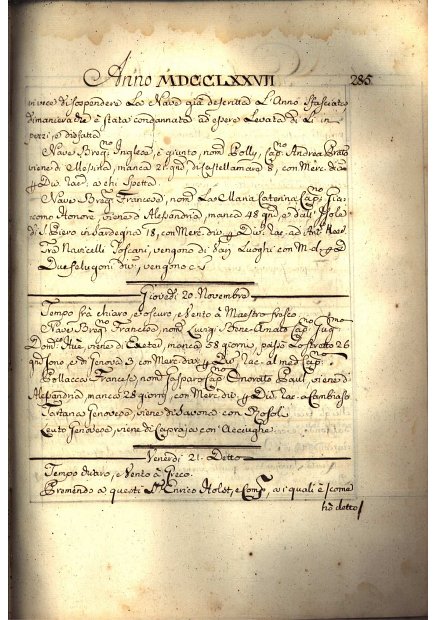 Anno MDCCLXXVII 285
in vece di sospendere La Nave già descritta L'Anno sfasciata
di maniera che è stata condannata ad essere Levata di Lì in
pezzi, e disfatta
Nave Inglesa, è giunto, nom Polly, Cap.no Andrea
viene di Messina, manca 21. qni di Castellamare 8, con Merc. div.
Div. Rac. a chi Spetta
Nave Francesa, nom La Maria Caterina, Cap.no Gia-
como Honoré, viene d'Alessandria, manca 48 qni, e dall'Isole
di S. Piero in Sardegna 18, con Merc. div. Div. Rac. ad
Tra Navicelli Toscani, vengono di Luoghi con M. d.
Due felugoni div. vengono c. s.
Giovedì 20. Novembre
Tempo frà chiaro, e oscuro, e Vento à Maestro fresco
Nave Francese, nom Luigi Bene-Amato Cap.no
viene di Exeter, manca 58 giorni, passò Lo stretto 26
qni sono, e di Genova 3, con Merc. div. Div. Rac. al med. Cap.no
Pollacca Francese, nom Gasparo Cap.no Onorato viene d'
Alesandria, manca 28 giorni, con Merc. div. Div. Rac. a Cambiaso
Tartana Genovesa, viene di Savona con Rosoli
Leuto Genovese, viene di Capraja con Acciughe
Venerdì 21. Detto
Tempo chiaro, e Vento à Greco.
Premendo a questi Sri Enrico Holst, e Comp, a i quali è
hò detto